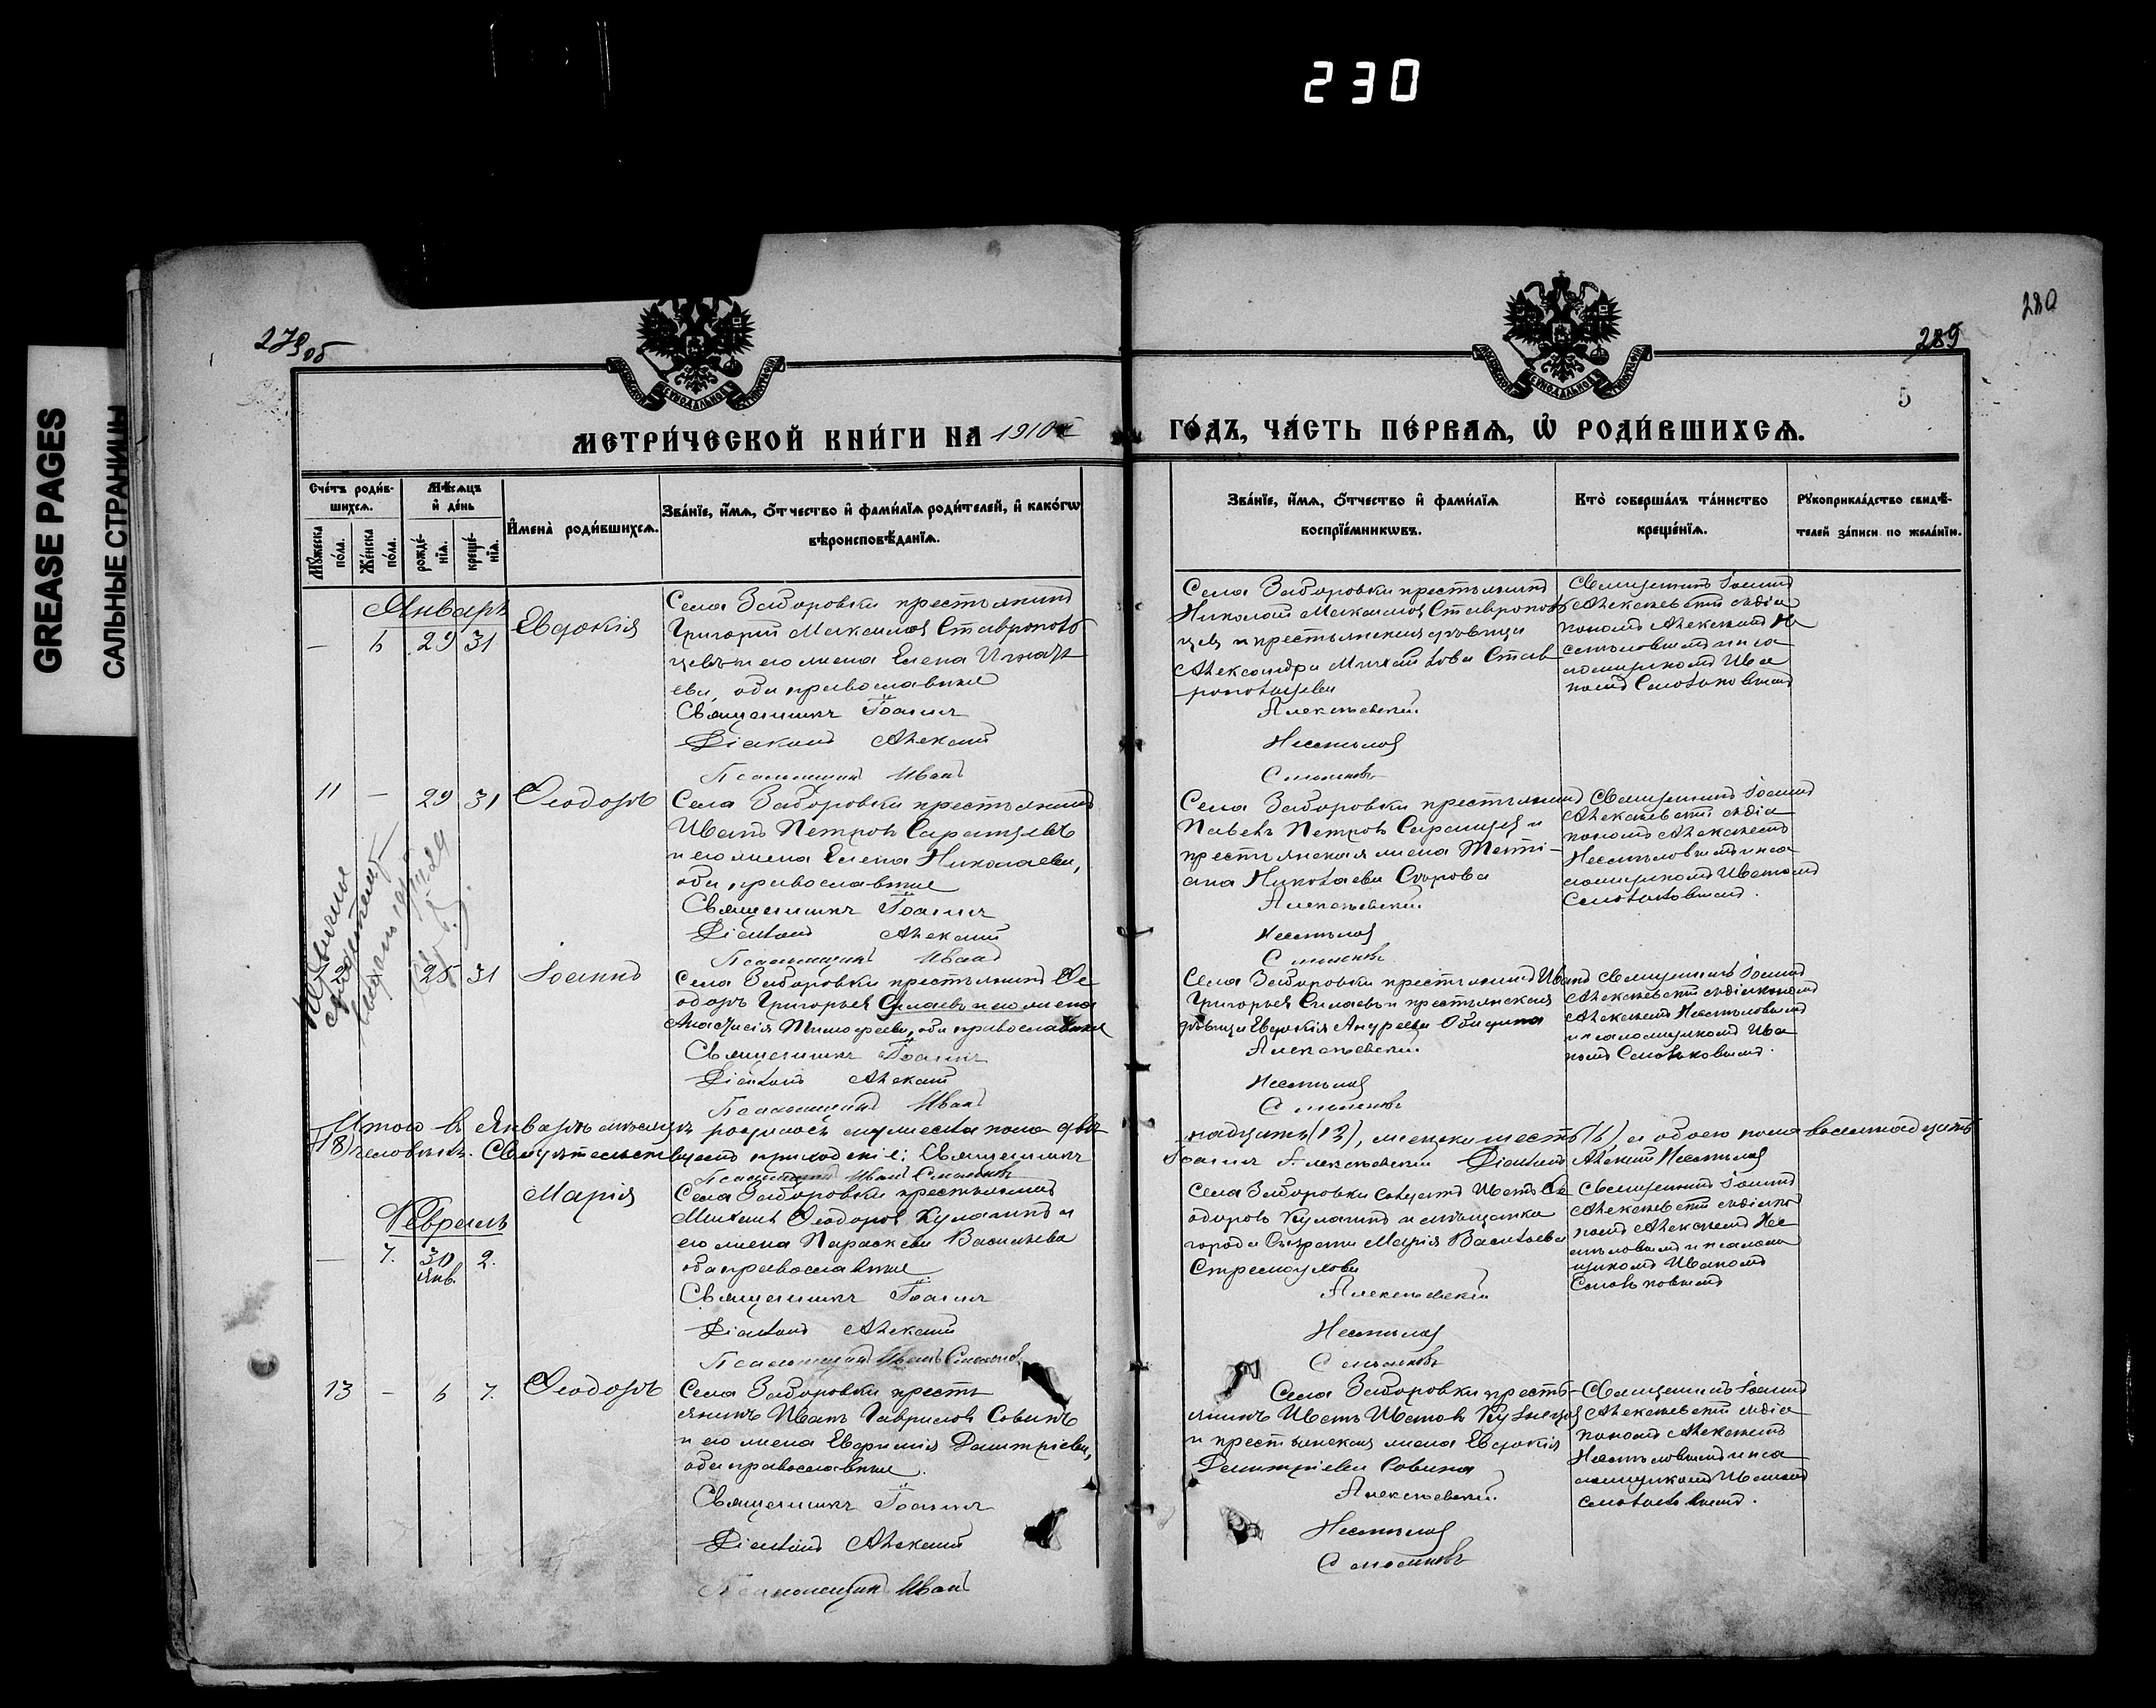 230
GREASE PAGES
САЛЬНЫЕ СТРАНИЦЫ
279 об
280
289
5
МЕТРИ́ЧЕСКОЙ КНИ́ГИ НА 1910 й
ГО́ДЪ, ЧА́СТЬ ПЕ́РВАѦ, Ѡ҆ РОДИ́ВШИХСѦ.
Сче́тъ роди́в-
шихсѧ.
Мꙋ́жеска
по́ла.
Же́нска
по́ла.
Мѣ́сѧцъ
и҆ де́нь
рожде́-
нїѧ.
креще́-
нїѧ.
И҆мена̀ роди́вшихсѧ.
Зва́нїе, и҆́мѧ, ѻ҆́тчество и҆ фами́лїѧ роди́телей, и҆ како́гѡ
вѣроисповѣ́данїѧ.
Зва́нїе, и҆́мѧ, ѻ҆́тчество и҆ фами́лїѧ
воспрїе́мникѡвъ.
Кто̀ соверша́лъ та́инство
креще́нїѧ.
Рꙋкоприкла́дство свидѣ́-
телей за́писи по жела́нїю.
Январь
— 6 29 31
Евдокія
Села Заборовки крестьянинъ
Григорій Максимовъ Ставрополь
цевъ и его жена Елена Игнать
ева, оба православные
Священникъ Іоаннъ
Діаконъ Алексій
Псаломщикъ Иванъ
Села Заборовки крестьянинъ
Николай Максимовъ Ставрополь
цевъ и крестьянская дѣвица
Александра Михайлова Став
ропольцева
Алексѣевскій
Несмѣловъ
Священникъ Іоаннъ
Алексѣевскій съ діа
кономъ Алексіемъ Не
смѣловымъ и пса
ломщикомъ Ива
номъ
11 — 29 31
Ѳеодоръ
Села Заборовки крестьянинъ
Иванъ Петровъ Саранцевъ
и его жена Елена Николаева,
оба православные
Священникъ Іоаннъ
Діаконъ Алексій
Псаломщикъ Иванъ
Села Заборовки крестьянинъ
Павелъ Петровъ Саранцевъ и
крестьянская жена Тати-
ана Николаева
Алексѣевскій
Несмѣловъ
Священникъ Іоаннъ
Алексѣевскій съ діа
кономъ Алексіемъ
Несмѣловымъ и пса
ломщикомъ Иваномъ
12 — 25 31
Іоаннъ
Села Заборовки крестьянинъ Ѳе
одоръ Григорьевъ Силаевъ и его жена
Анастасія Тимофеева, оба православные
Священникъ Іоаннъ
Діаконъ Алексій
Псаломщикъ Иванъ
Села Заборовки крестьянинъ Иванъ
Григорьевъ Силаевъ и крестьянская
дѣвица Евдокія Андреева
Алексѣевскій
Несмѣловъ
Священникъ Іоаннъ
Алексѣевскій съ діакономъ
Алексіемъ Несмѣловымъ
и псаломщикомъ Ива
номъ
Итого въ Январѣ мѣсяцѣ родилось мужеска пола две
надцать (12), женска шесть (6), а обоего пола восемнадцать
(18) человѣкъ. Священникъ
Іоаннъ Алексѣевскій Діаконъ Алексій Несмѣловъ
Псаломщикъ Иванъ
Февраль
— 7. 30 янв. 2.
Марія
Села Заборовки крестьянинъ
Михаилъ Ѳеодоровъ Кулагинъ и
его жена Параскева Васильева
оба православные
Священникъ Іоаннъ
Діаконъ Алексій
Псаломщикъ Иванъ
Села Заборовки
одоровъ Кулагинъ и мѣщанка
города Сызрани Марія Васильева
Алексѣевскій
Несмѣловъ
Священникъ Іоаннъ
Алексѣевскій съ діако
номъ Алексіемъ Не
смѣловымъ и псалом
щикомъ Иваномъ
13 — 6 7.
Ѳеодоръ
Села Заборовки кресть
янинъ Иванъ Гавриловъ Совинъ
и его жена Евфимія Димитріева,
оба православные.
Священникъ Іоаннъ
Діаконъ Алексій
Псаломщикъ Иванъ
Села Заборовки кресть-
янинъ Иванъ Ивановъ Кузнецовъ
и крестьянская жена Евдокія
Димитріева Совина
Алексѣевскій
Несмѣловъ
Священникъ Іоаннъ
Алексѣевскій съ діа
кономъ Алексіемъ
Несмѣловымъ и пса
ломщикомъ Иваномъ